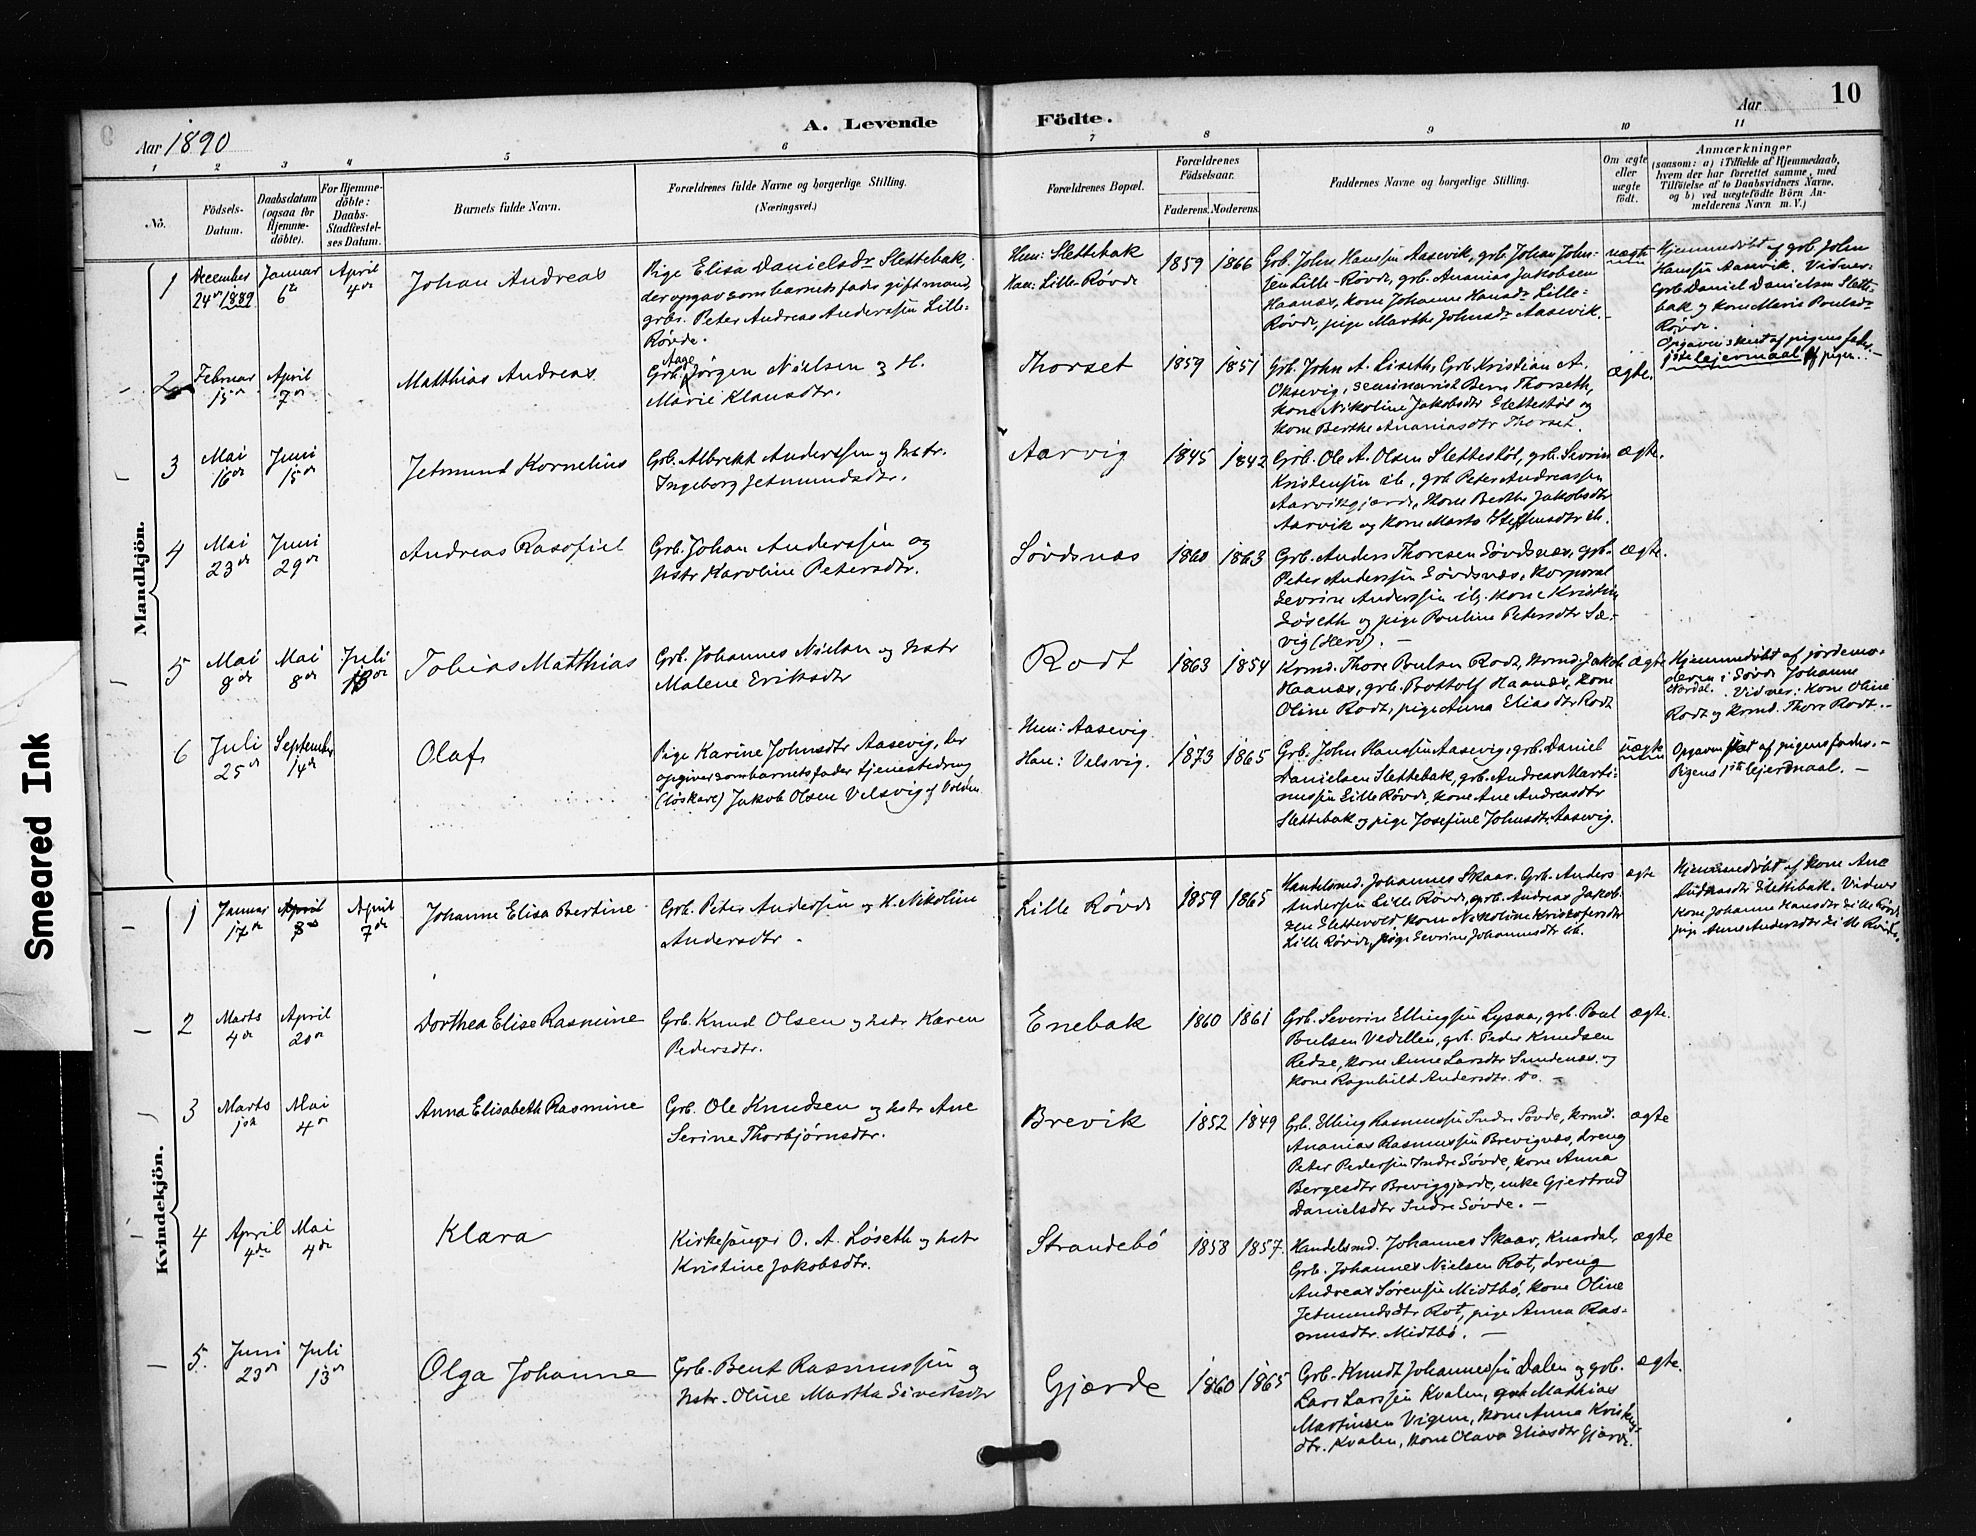 10
Aar 1890
A. Levende Födte.
Aar
1 2 3 4 5 6 7 8 9 10 11
No.
Födsels-
Datum.
Daabsdatum
(ogsaa for
Hjemme-
döbte).
For Hjemme-
döbte:
Daabs-
Stadfæstel-
ses Datum.
Barnets fulde Navn.
Forældrenes fulde Navne og borgerlige Stilling.
(Næringsvei.)
Forældrenes Bopæl.
Forældrenes
Födselsaar.
Faderens. Moderens.
Faddernes Navne og borgerlige Stilling.
Om ægte
eller
uægte
födt.
Anmærkninger
(saasom: a) i Tilfælde af Hjemmedaab,
hvem der har forrettet samme, med
Tilföielse af to Daabsvidners Navne,
og b) ved uægtefödte Börn An-
melderens Navn m. V.)
Mandkjön.
1
December
24de 1889
Januar
6te
April
4de
Johan Andreas
Pige Elisa Danielsdr Slettebak,
der opgav som barnets fader gift mand,
grbr. Peter Andreas Anderssen Lille-
Røvde.
Hun: Slettebak
Han: Lille-Røvde
1859 1866
Grb. John Hanssen Aasevik, grb. Johan John-
sen Lille-Røvde, grb. Ananias Jakobsen
Haanæs, kone Johanne Hansdr Lille-
Røvde, pige Marthe Johnsdr Aasevik.
uægte
Hjemmedøbt af grb. John
Hanssen Aasevik. Vidner:
Grb. Daniel Danielsen Slette-
bak og kone Maris Poulsdr
Røvde.
Opgaven skeet af pigens fader.
1ste leiermaal af pigen.
2
Februar
15de
April
7de
Matthias Andreas
Aage
Grb. Jørgen Nielsen og H.
Marie Klausdtr.
Thorset
1859 1851
Grb. John A. Liseth, Grb. Kristian A.
Oksevig, seminarist Bern. Thorseth,
kone Nikoline Jakobsdtr Slettestøl og
kone Berthe Ananiasdtr Thorset.
ægte.
3
Mai
16de
Juni
15de
Jetmund Kornelius
Grb. Albrekt Anderssen og hstr.
Ingeborg Jetmundsdtr.
Aarvig
1845 1842
Grb. Ole A. Olsen Slettestøl, grb. Sevrin
Kristensen ib., grb. Peter Andreassen
Aarvikgjærde, kone Berthe Jakobsdtr
Aarvik og kone Marta Steffensdtr ib.
ægte.
4
Mai
23de
Juni
29de
Andreas Rasofiel
Grb. Johan Anderssen og
hstr Karoline Petersdtr.
Søvdsnæs
1860 1863
Grb. Anders Thoresen Søvdsnæs, grb.
Peter Anderssen Søvdsnæs, korporal
Sevrine Anderssen ib., kone Kristin
Løseth og pige Pauline Petersdtr Sæ-
vig (Herø).
ægte.
5
Mai
8de
Mai
8de
Juli
13de
Tobias Matthias
Grb. Johannes Nielsen og hstr
Malene Eriksdtr
Rodt
1863 1854
Krmd. Thore Poulsen Rodt, krmd. Jakob
Haanæs, grb. Bottolf Haanæs, kone
Oline Rodt, pige Anna Eliasdtr Rodt
ægte
Hjemmedøbt af jordemo-
deren i Søvde Johanne
Nordal. Vidner: Kone Oline
Rodt og krmd. Thore Rodt.
6
Juli
25de
September
14de
Olaf
Pige Karine Johnsdtr Aasevig, der
opgiver som barnets fader tjenestedreng
(løskare) Jakob Olsen Velsvig af Volden
Hun: Aasevig
Han: Velsvig.
1873 1865
Grb. John Hanssen Aasevig, grb. Daniel
Danielsen Slettebak, grb. Andreas Marti-
nussen Lille Røvde, kone Ane Andreasdtr
Slettebak og pige Josefine Johnsdtr. Aasevig.
uægte
Opgaven skeet af pigens fader.
Pigens 1ste leiermaal.
Kvindekjön.
1
Januar
17de
April
April
7de
Johanne Elisa Bertine
Grb. Peter Anderssen og H. Nikoline
Andersdtr.
Lille Røvde
1859 1865
Handelsmd. Johannes Skaar. Grb. Anders
Anderssen Lille Røvde, grb. Andreas Jakob-
sen Slettevold, kone Nikoline Kristofersdtr
Lille Røvde, pige Sevrine Johannesdtr ib.
ægte
Hjemmedøbt af kone Ane
Slettebak. Vidner
kone Johanne Hansdtr Lille Røvde
pige Anne Andersdtr Lille Røvde.
2
Marts
4de
April
20de
Dorthea Elise Rasmine
Grb. Knud Olsen og hstr Karen
Pedersdtr.
Enebak
1860 1861
Grb. Severin Ellingsen Lysaa, grb. Poul
Poulsen Vedellen, grb. Peder Knudsen
Redse, kone Anne Larsdtr Sundenæs og
kone Ragnhild Andersdtr. do.
ægte.
3
Marts
Mai
4de
Anna Elisabeth Rasmine
Grb. Ole Knudsen og hstr Ane
Serine Thorbjørnsdtr.
Brevik
1852 1849
Grb. Elling Rasmussen Indre Søvde, krmd.
Ananias Rasmussen Brevignæs, dreng
Peter Pedersen Indre Søvde, kone Anna
Bergesdtr Breviggjærde, enke Gjertrud
Danielsdtr Indre Søvde.
ægte
4
April
4de
Mai
4de
Klara
Kirkesanger O. A. Løseth og hstr
Kristine Jakobsdtr.
Strandebø
1858 1857.
Handelsmd. Johannes Skaar, Knardal,
Grb. Johannes Nielsen Rot, dreng
Andreas Sørensen Midtbø, kone Oline
Jetmundsdtr Rot, pige Anna Ras-
musdtr. Midtbø.
ægte
5.
Juni
23de
Juli
13de
Olga Johanne
Grb. Bent Rasmussen og
hstr. Oline Martha Sivertsdtr
Gjærde
1860 1865
Grb. Knudt Johannessen Dalen og grb.
Lars Larssen Kvalen, grb Mathias
Martinsen Vigene, kone Anna
dtr. Kvalen, kone Olava Eliasdtr Gjærde.
ægte.
Smeared Ink